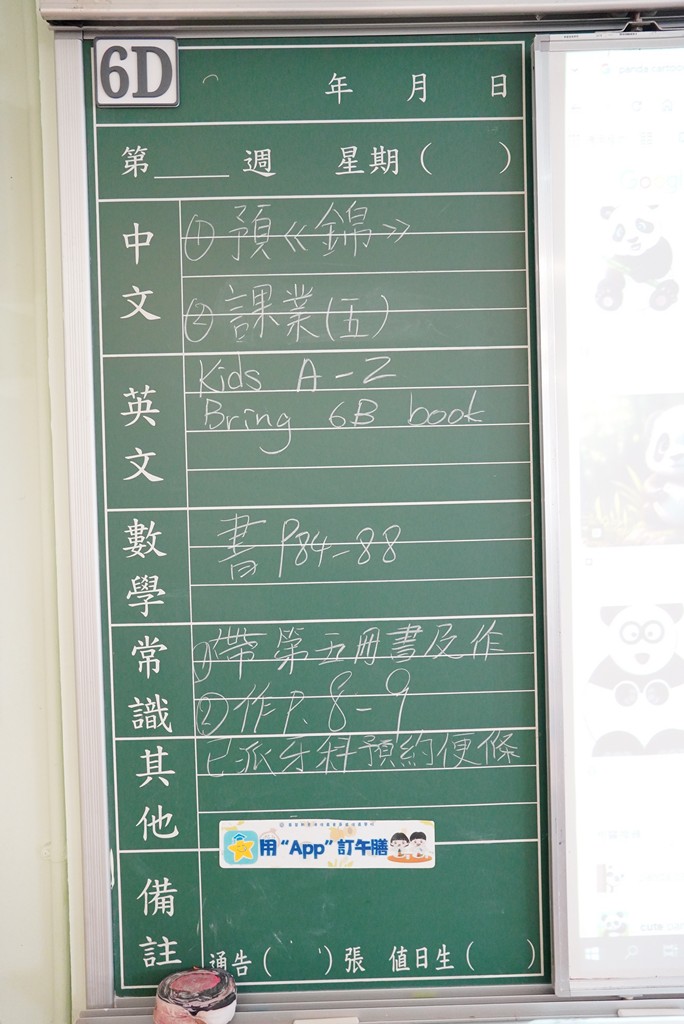 6D
年 月 日
第____週 星期( )
中文
①預《錦》
②課業(五)
英文
Kids A-Z
Bring 6B book
數學
書 P84-88
常識
①帶第五冊書及作
②作P.8-9
其他
已派牙科預約便條
用“App”訂午膳
備註
通告( )張 值日生( )
Google